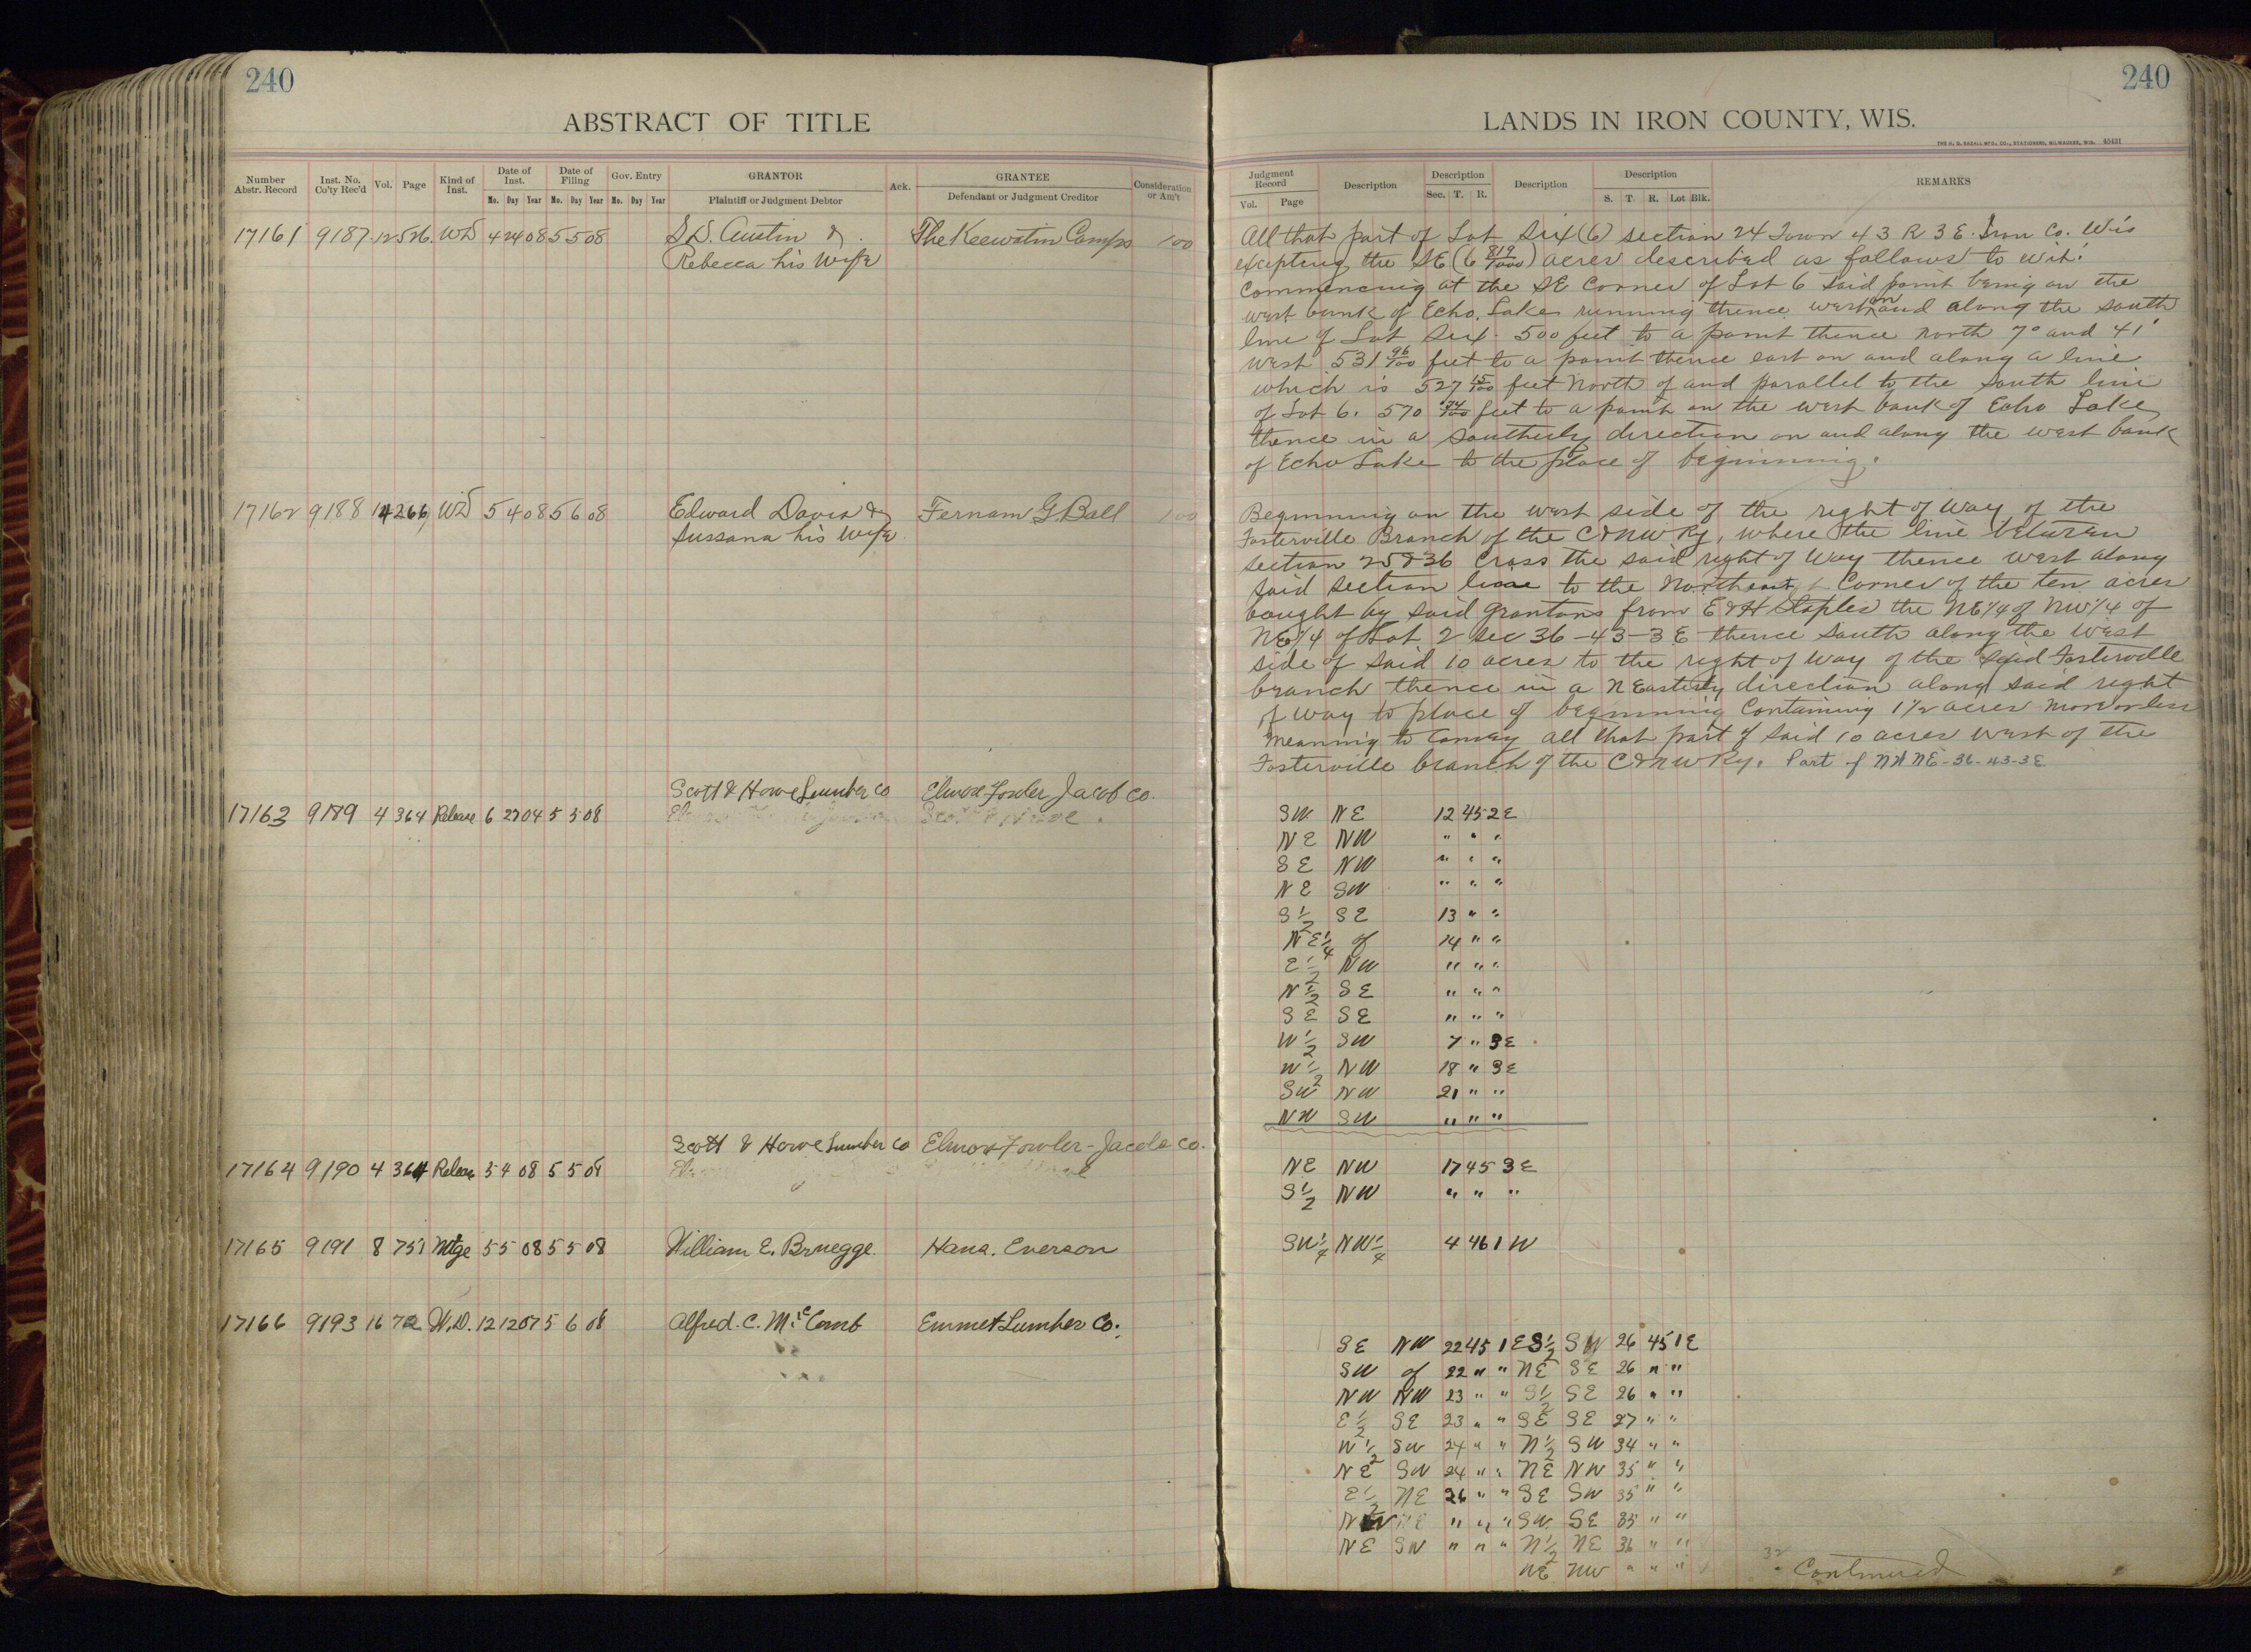 240
ABSTRACT OF TITLE
Number Abstr. Record | Inst. No. Co'ty Rec'd | Vol. | Page | Kind of Inst. | Date of Inst. Mo. Day Year | Date of Filing Mo. Day Year | Gov. Entry Mo. Day Year | GRANTOR Plaintiff or Judgment Debtor | Ack. | GRANTEE Defendant or Judgment Creditor | Consideration or Am't
17161 9187 12 526 WD 4 24 08 5 5 08 S.D. Austin & The Keewatin Camps 100
Rebecca his Wife
17162 9188 14 266 WD 5 4 08 5 6 08 Edward Davis & Fernam G. Ball 100
Sussana his Wife
Scott & Howe Lumber Co Elmore Fowler Jacob Co.
17163 9189 4 364 Release 6 27 04 5 5 08
Scott & Howe Lumber Co Elmore Fowler-Jacobs Co.
17164 9190 4 364 Release 5 4 08 5 5 08
17165 9191 8 751 Mtge 5 5 08 5 5 08 William E. Bruegge. Hans. Everson
17166 9193 16 72 W.D. 12 12 07 5 6 08 Alfred. C. McComb Emmet Lumber Co.
240
LANDS IN IRON COUNTY, WIS.
THE H. G. RAZALL MFG. CO., STATIONERS, MILWAUKEE, WIS. 45431
Judgment Record Vol. Page | Description | Description Sec. T. R. | Description | Description S. T. R. Lot Blk. | REMARKS
All that part of Lot Six (6) section 24 Town 43 R 3 E. Iron Co. Wis
excepting the SE (6 819/1000) acres described as follows to wit:
Commencing at the SE Corner of Lot 6 said point being on the
west bank of Echo Lake running thence west on and along the south
line of Lot Six. 500 feet to a point thence north 7° and 41'
west 531 96/100 feet to a point thence east on and along a line
which is 527 15/100 feet North of and parallel to the south line
of Lot 6. 570 74/100 feet to a point on the west bank of Echo Lake
thence in a southerly direction on and along the west bank
of Echo Lake to the place of beginning.
Beginning on the west side of the right of Way of the
Fosterville Branch of the C&NW Ry, where the line between
section 25 & 36 Cross the said right of Way thence west along
said section line to the Northeast Corner of the ten acres
bought by said grantors from E & H Staples the NE 1/4 of NW 1/4 of
NE 1/4 of Lot 2 Sec 36-43-3E thence South along the West
side of said 10 acres to the right of Way of the said Fosterville
branch thence in a N Easterly direction along said right
of Way to place of beginning Containing 1 1/2 acres more or less
Meaning to Convey all that part of said 10 acres West of the
Fosterville branch of the C&NW Ry. Part of NW NE-36-43-3E
SW NE 12 45 2E
NE NW " " "
SE NW " " "
NE SW " " "
S 1/2 SE 13 " "
NE 1/4 of 14 " "
E 1/2 NW " " "
N 1/2 SE " " "
SE SE " " "
W 1/2 SW 7 " 3E
W 1/2 NW 18 " 3E
SW NW 21 " "
NW SW " " "
NE NW 17 45 3E
S 1/2 NW " " "
SW 1/4 NW 1/4 4 46 1 W
SE NW 22 45 1 E S 1/2 SW 26 45 1E
SW of 22 " " NE SE 26 " "
NW NW 23 " " S 1/2 SE 26 " "
E 1/2 SE 23 " " SE SE 27 " "
W 1/2 SW 24 " " N 1/2 SW 34 " "
NE SW 24 " " NE NW 35 " "
E 1/2 NE 26 " " SE SW 35 " "
NW NE " " " SW SE 35 " "
NE SW " " " N 1/2 NE 36 " "
NE NW " " "
Continued